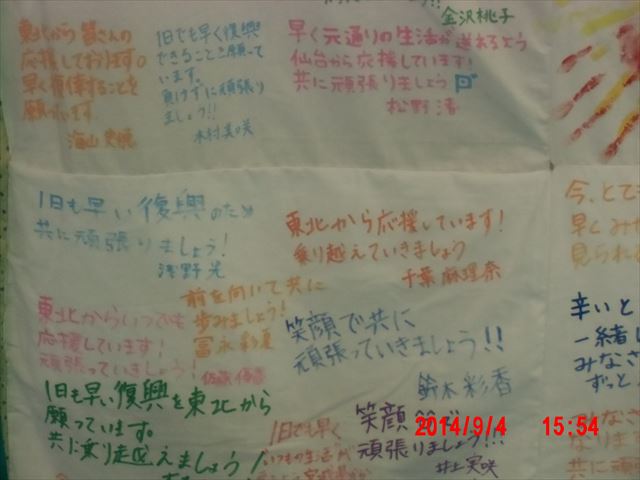 金沢桃子
東北から皆さんの
応援しております。
早く復倖することを
願っています。
海山
1日でも早く復興
できることを願って
います。
負けずに頑張り
ましょう!!
木村美咲
早く元通りの生活が送れるよう
仙台から応援しています!
共に頑張りましょう
松野
1日も早い復興のため
共に頑張りましょう!
浅野光
東北から応援しています!
乗り越えていきましょう
千葉麻理奈
前を向いて共に
歩みましょう!
冨永彩夏
東北からいつでも
応援しています!
頑張っていきましょう!
笑顔で共に
頑張っていきましょう!!
鈴木彩香
1日も早い復興を東北から
願っています。
共に乗り越えましょう!
1日でも早く
いつもの生活が
笑顔^^
頑張りましょう!!!
井上実咲
今、とて
早くみ
見られ
辛いと
一緒に
みなさ
ずっと
みなさ
なりま
共に頑
2014/9/4 15:54